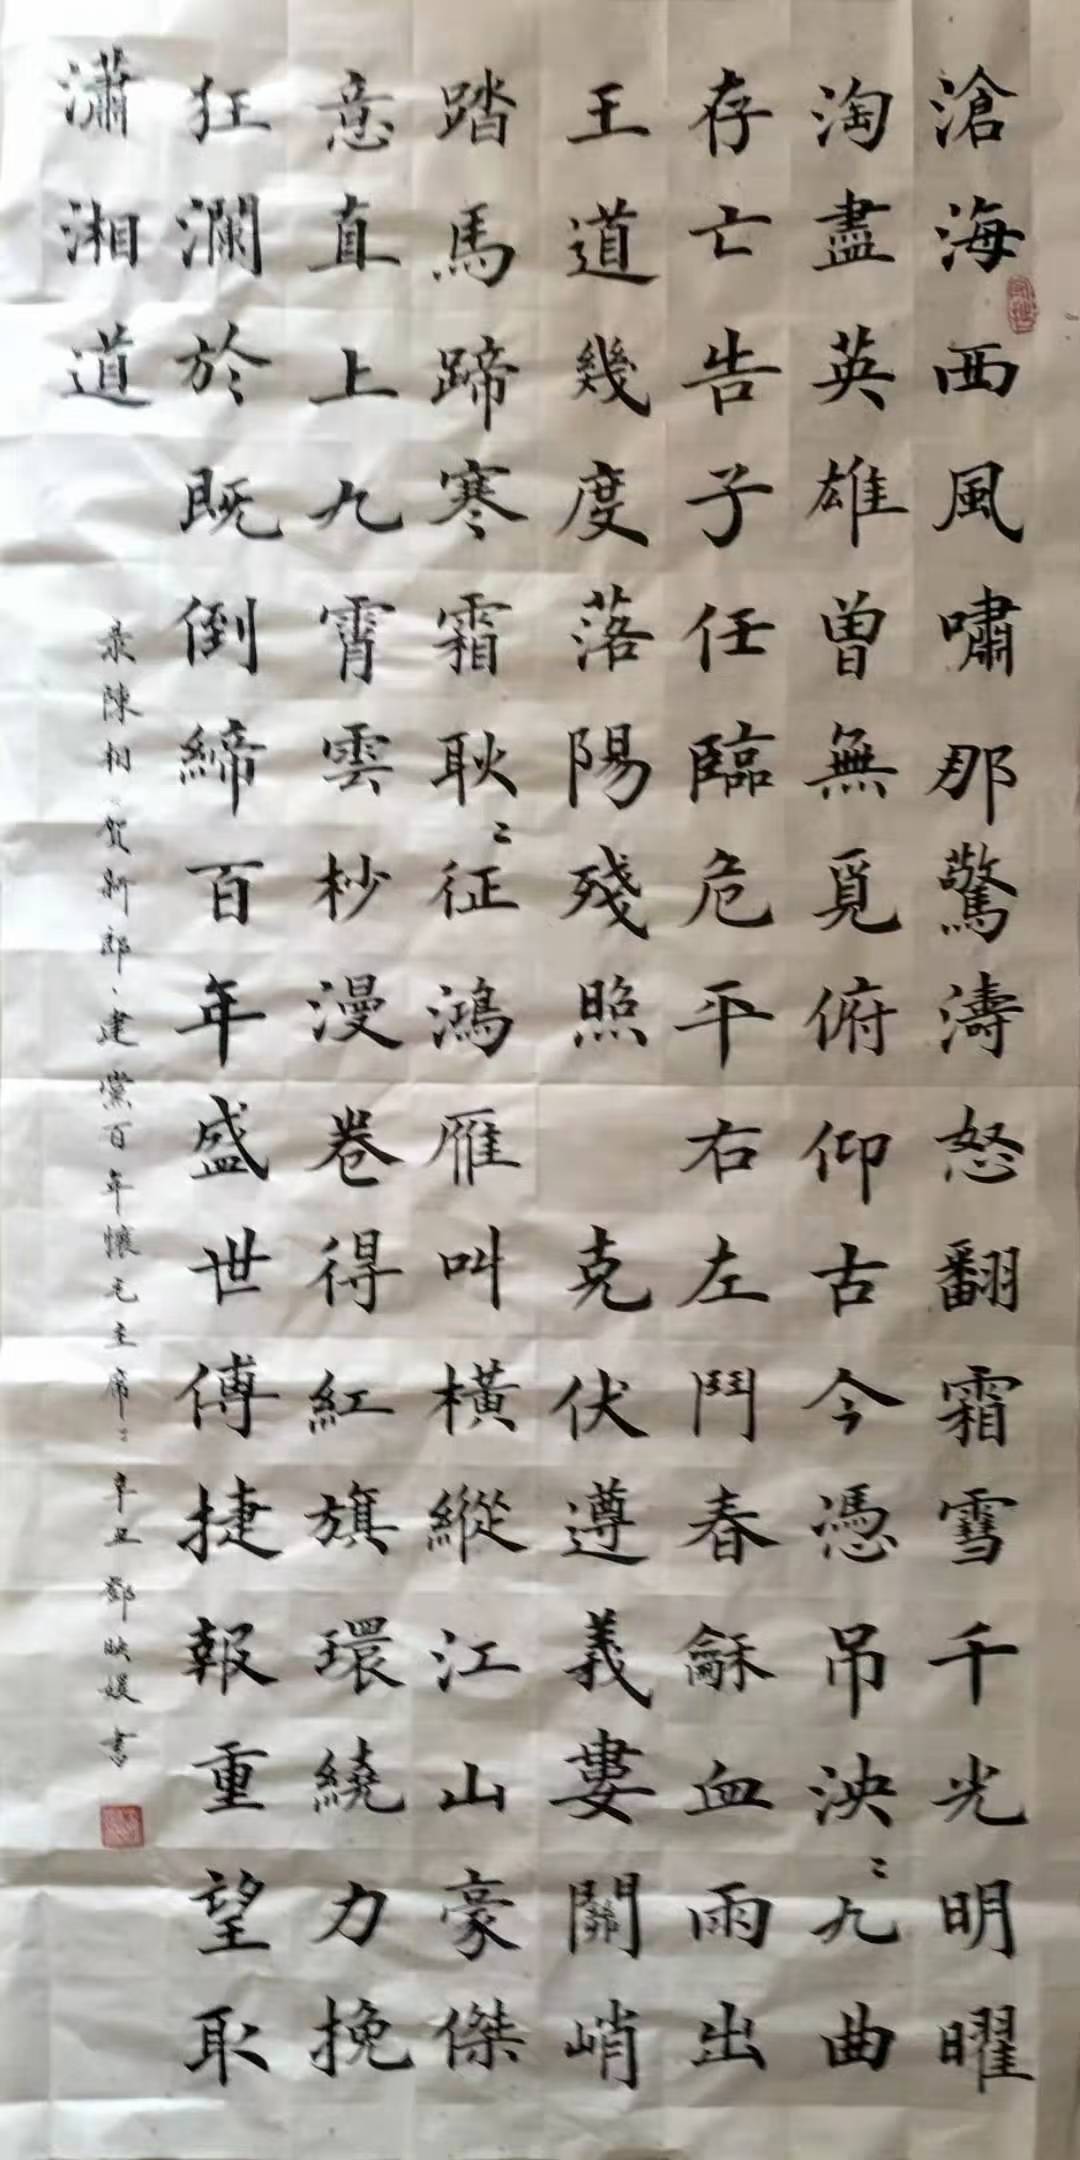 滄海西風嘯那驚濤怒翻霜雪千光明曜
淘盡英雄曾無覓俯仰古今憑吊泱〻九曲
存亡告子任臨危平右左鬥春龢血雨出
王道幾度落陽殘照 克伏遵義婁關峭
踏馬蹄寒霜耿〻征鴻雁叫橫縱江山豪傑
意直上九霄雲杪漫卷得紅旗環繞力挽
狂瀾於既倒締百年盛世傳捷報重望取
瀟湘道
录陳相賀新郎、建黨百年懷毛主席〻辛丑鄧映媛書